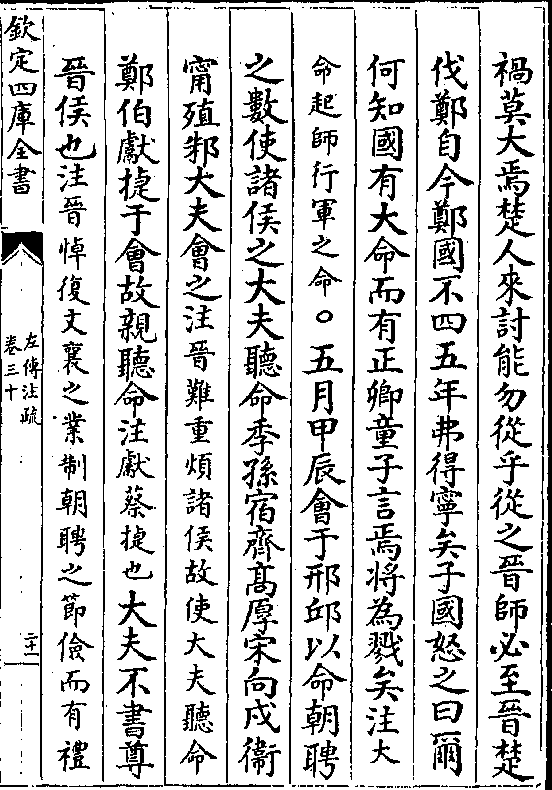 禍莫大焉楚人來討能勿從乎從之晉師必至晉楚
伐鄭自今鄭國不四五年弗得寧矣子國怒之曰爾
何知國有大命而有正卿童子言焉將為戮矣注大
命起師行軍之命○五月甲辰會于邢邱以命朝聘
之數使諸侯之大夫聽命季孫宿齊髙厚宋向戍衞
甯殖邾大夫會之注晉難重煩諸侯故使大夫聽命
鄭伯獻捷于會故親聽命注獻蔡捷也大夫不書尊
晉侯也注晉悼復文襄之業制朝聘之節儉而有禮
欽定四庫全書
左傳注疏
卷三十
二十一